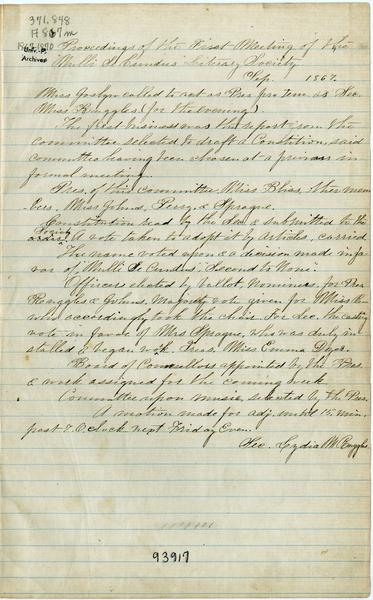 371.848
H 867m
1867-1870
Univ.
Archives
Proceedings of the First Meeting of the
Nulli Secundus Literary Society
Sep. 1867.
Miss Goslyn called to act as Pres. pro tem. as Sec.
Miss Ruggles (for the evening)
The first business was the report from the
committee selected to draft a Constitution, said
committee having been chosen at a previous in
formal meeting
Pres. of this committee Miss Bliss, other mem
bers, Misses Johns, Perry, & Sprague.
Constitution read by the Sec & submitted to the
Society. A vote taken to adopt it by Articles, carried
The name voted upon & a decision made in fa
vor of "Nulli Secundus" Second to None.
Officers elected by ballot. Nominees, for Pres
Ruggles & Johns, Majority vote given for Miss
who accordingly took the chair. For Sec. the casting
vote in favor of Mrs Sprague, who was duly in
stalled & began work. Treas. Miss Emma Dyor.
Board of Counsellors appointed by the Pres.
& work assigned for the coming week
Committee upon music, selected by the Pres.
A motion made for adj. until 15 min.
past 7. O.clock next Friday Even.
Sec. Lydia M Ruggles
93917